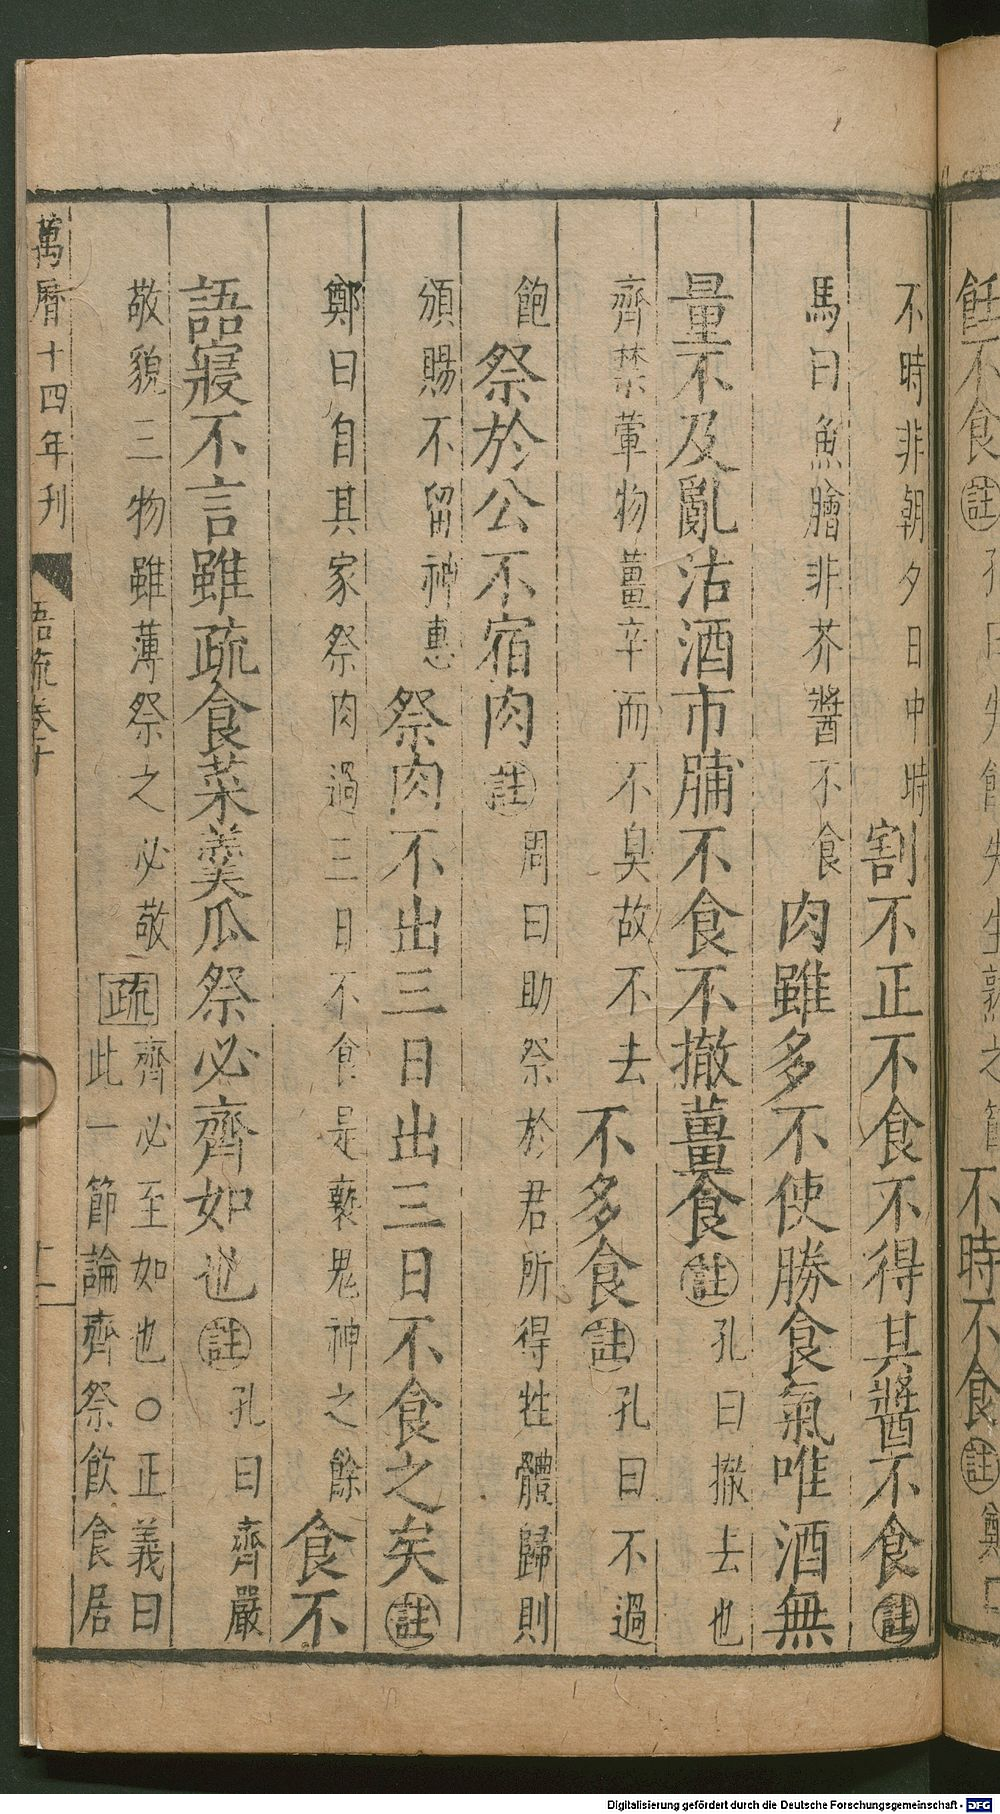 飪不食註孔曰失飪失生熟之節不時不食註鄭曰
不時非朝夕日中時割不正不食不得其醬不食註
馬曰魚膾非芥醬不食肉雖多不使勝食氣唯酒無
量不及亂沽酒市脯不食不撤薑食註孔曰撤去也
齊禁葷物薑辛而不臭故不去不多食註孔曰不過
飽祭於公不宿肉註周曰助祭於君所得牲體歸則
頒賜不留神惠祭肉不出三日出三日不食之矣註
鄭曰自其家祭肉過三日不食是褻鬼神之餘食不
語寢不言雖疏食菜羹瓜祭必齊如也註孔曰齊嚴
敬貌三物雖薄祭之必敬疏齊必至如也○正義曰
此一節論齊祭飲食居
萬曆十四年刊 語疏卷十 十一
Digitalisierung gefördert durch die Deutsche Forschungsgemeinschaft - DFG